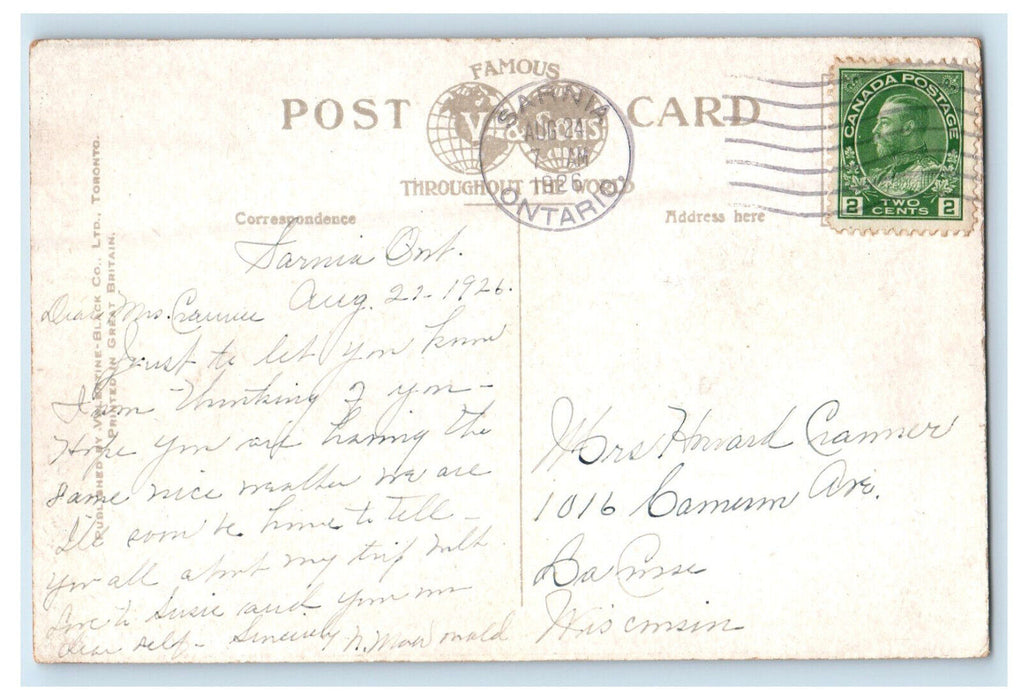 FAMOUS
POST CARD
V & Sons
THROUGHOUT THE WORLD
SARNIA
AUG 24
7 AM
1926
ONTARIO.
CANADA POSTAGE
2 TWO CENTS 2
PUBLISHED BY VALENTINE-BLACK CO., LTD., TORONTO.
PRINTED IN GREAT BRITAIN.
Correspondence
Address here
Sarnia Ont.
Aug. 21-1926.
Dear Mrs. Cranmer
Just to let you know
I am thinking of you -
Hope you are having the
same nice weather we are
I'll soon be home to tell -
you all about my trip with
love to Susie and your own
dear self - Sincerely N. MacDonald
Mrs Howard Cranmer
1016 Cameron Ave.
La Crosse
Wisconsin